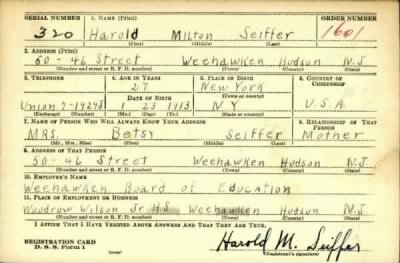 SERIAL NUMBER 1. NAME (Print) ORDER NUMBER
320 Harold Milton Seiffer 1601
(First) (Middle) (Last)
2. ADDRESS (Print)
50-46 Street Weehawken Hudson N.J.
(Number and street or R. F. D. number) (Town) (County) (State)
3. TELEPHONE 4. AGE IN YEARS 5. PLACE OF BIRTH 6. COUNTRY OF CITIZENSHIP
27 New York
DATE OF BIRTH (Town or county)
Union 7-1929J 1 23 1913 N Y U.S.A.
(Exchange) (Number) (Mo.) (Day) (Yr.) (State or country)
7. NAME OF PERSON WHO WILL ALWAYS KNOW YOUR ADDRESS 8. RELATIONSHIP OF THAT PERSON
MRS. Betsy Seiffer Mother
(Mr., Mrs., Miss) (First) (Middle) (Last)
9. ADDRESS OF THAT PERSON
50-46 Street Weehawken Hudson N.J.
(Number and street or R. F. D. number) (Town) (County) (State)
10. EMPLOYER'S NAME
Weehawken Board of Education
11. PLACE OF EMPLOYMENT OR BUSINESS
Woodrow Wilson Jr. H.S. Weehawken Hudson N.J.
(Number and street or R. F. D. number) (Town) (County) (State)
I AFFIRM THAT I HAVE VERIFIED ABOVE ANSWERS AND THAT THEY ARE TRUE.
REGISTRATION CARD
D. S. S. Form 1
Harold M. Seiffer
(Registrant's signature)